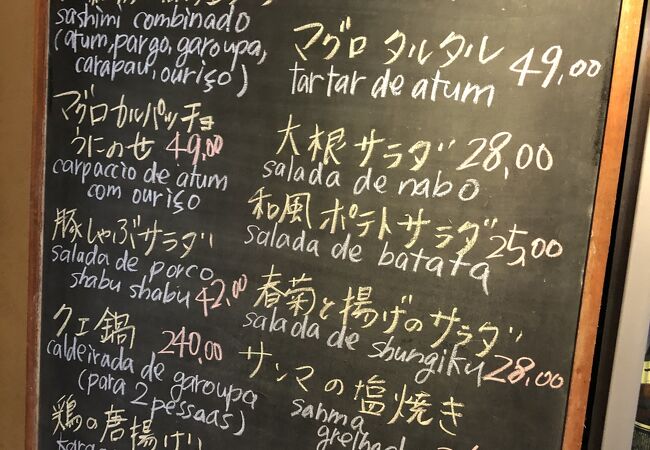 sashimi combinado
(atum, pargo, garoupa,
carapau, ouriço)
マグロカルパッチョ
うにのせ 49,00
carpaccio de atum
com ouriço
豚しゃぶサラダ
salada de porco
shabu shabu 42,00
クエ鍋 240,00
caldeirada de garoupa
(para 2 pessoas)
鶏の唐揚げ
マグロ タルタル 49,00
tartar de atum
大根サラダ 28,00
salada de nabo
和風ポテトサラダ 25,00
salada de batata
春菊と揚げのサラダ
salada de shungiku 28,00
サンマの塩焼き
sanma